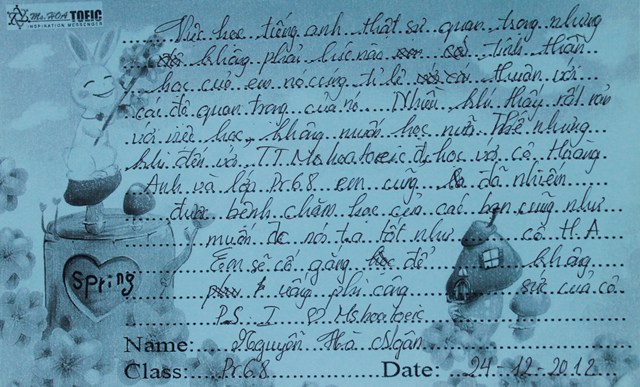 Ms.HOA TOEIC
INSPIRATION MESSENGER
Việc học tiếng anh thật sự quan trọng nhưng
không phải lúc nào tinh thần
học của em nó cũng tỉ lệ thuận với
cái độ quan trọng của nó. Nhiều khi thấy rất nản
với việc học, không muốn học nữa. Thế nhưng
khi đến với T.T Ms.hoa toeic đc học với cô Hoàng
Anh và lớp Pr68 em cũng đã nhiễm
được bệnh chăm học của các bạn cũng như
muốn đc nói t.a tốt như cô H.A
Em sẽ cố gắng để không
uổng phí công sức của cô
P.S I Ms.hoa toeic
Spring
Name: Nguyễn Hà Ngân
Class: Pr68 Date: 24-12-2012